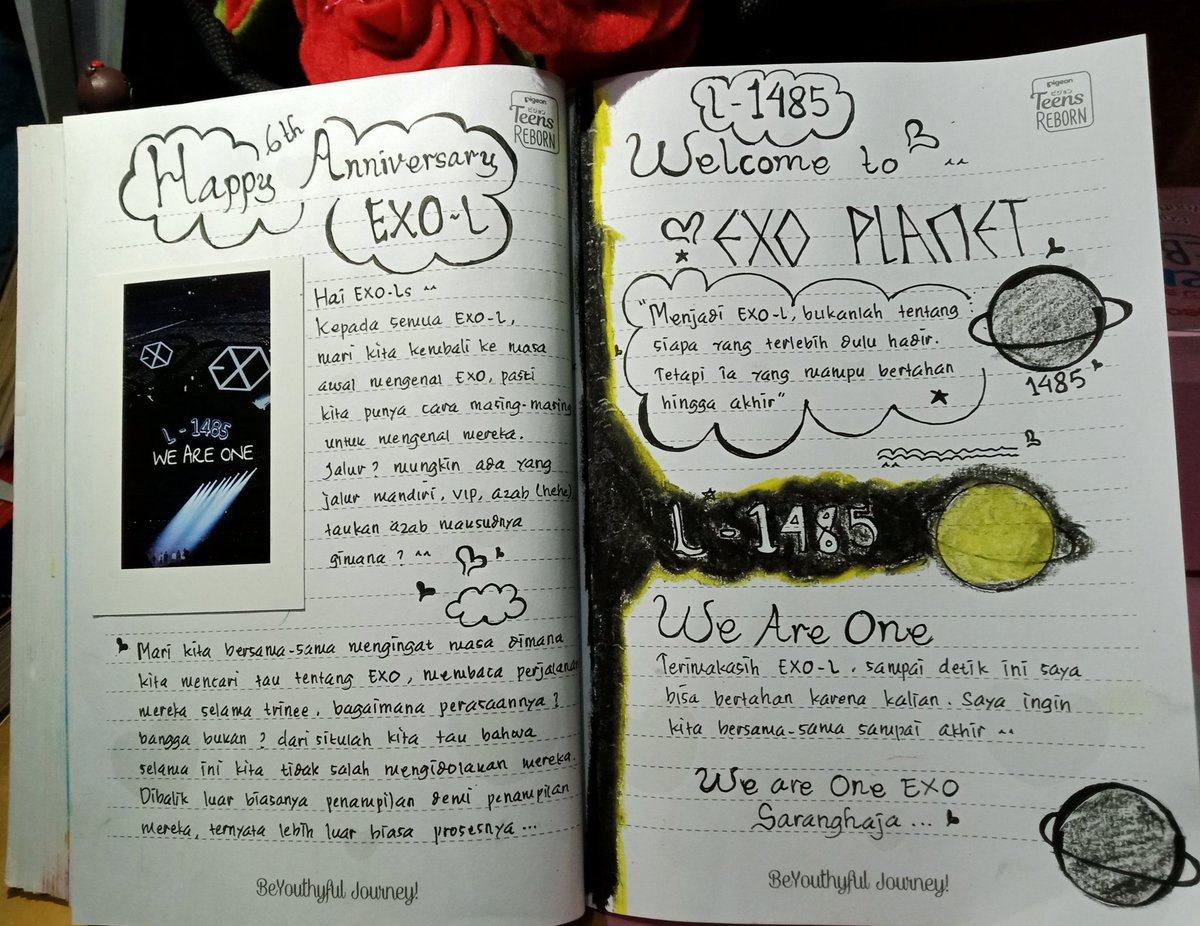 pigeon
Teens
REBORN
Happy 6th Anniversary
EXO-L
Hai EXO-Ls ^^
Kepada semua EXO-L,
mari kita kembali ke masa
awal mengenal EXO, pasti
kita punya cara masing-masing
untuk mengenal mereka.
Jalur? mungkin ada yang
jalur mandiri, VIP, azab (hehe)
taukan azab mausudnya
gimana? ^^
L-1485
WE ARE ONE
Mari kita bersama-sama mengingat masa dimana
kita mencari tau tentang EXO, membaca perjalanan
mereka selama trinee, bagaimana perasaannya?
bangga bukan? dari situlah kita tau bahwa
selama ini kita tidak salah mengidolakan mereka.
Dibalik luar biasanya penampilan demi penampilan
mereka, ternyata lebih luar biasa prosesnya...
BeYouthyful Journey!
pigeon
Teens
REBORN
L-1485
Welcome to ^^
EXO PLANET
"Menjadi EXO-L, bukanlah tentang
siapa yang terlebih dulu hadir.
Tetapi ia yang mampu bertahan
hingga akhir"
1485
L-1485
We Are One
Terimakasih EXO-L. sampai detik ini saya
bisa bertahan karena kalian. Saya ingin
kita bersama-sama sampai akhir ^^
We are One EXO
Saranghaja...
BeYouthyful Journey!